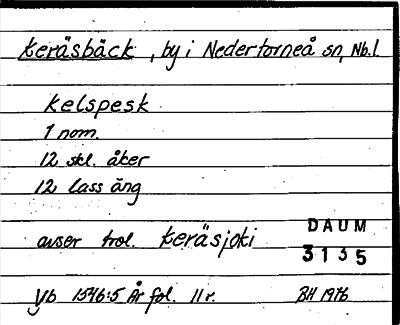 Keräsbäck, by i Nedertorneå sn, Nb.l.
Kelspesk
1 nom.
12 skl. åker
12 lass äng
avser trol. Keräsjoki
DAUM
3135
Yb 1546:5 År fol. 11r.
BH 1976